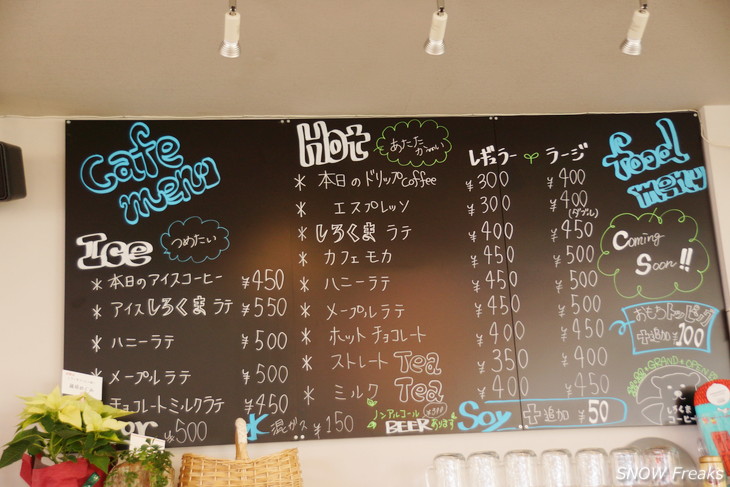 Cafe
menu
Ice
つめたい
* 本日のアイスコーヒー ¥450
* アイスしろくまラテ ¥550
* ハニーラテ ¥500
* メープルラテ ¥500
チョコレートミルクラテ ¥450
¥500
Hot
あたたかーい
レギュラー ラージ
* 本日のドリップcoffee ¥300 ¥400
エスプレッソ ¥300 ¥400
(ダブル)
* しろくまラテ ¥400 ¥450
* カフェモカ ¥450 ¥500
* ハニーラテ ¥450 ¥500
* メープルラテ ¥450 ¥500
* ホットチョコレート ¥400 ¥450
* ストレートTea ¥350 ¥400
* ミルクTea ¥400 ¥450
¥150
ノンアルコール
BEER あります
Soy +追加 ¥50
food
menu
Coming
Soon!!
+追加 ¥100
しろくま
コーヒー
SNOW Freaks